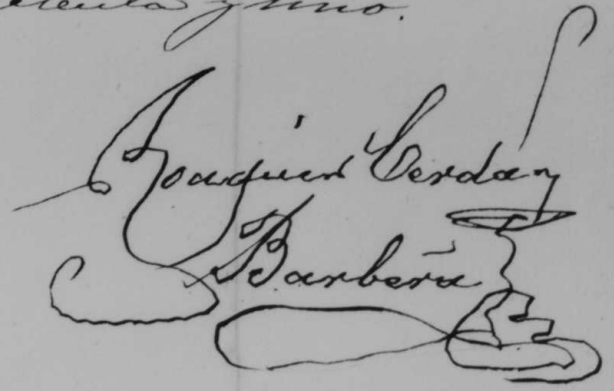 y uno.
Joaquin Cerdá y
Barberá